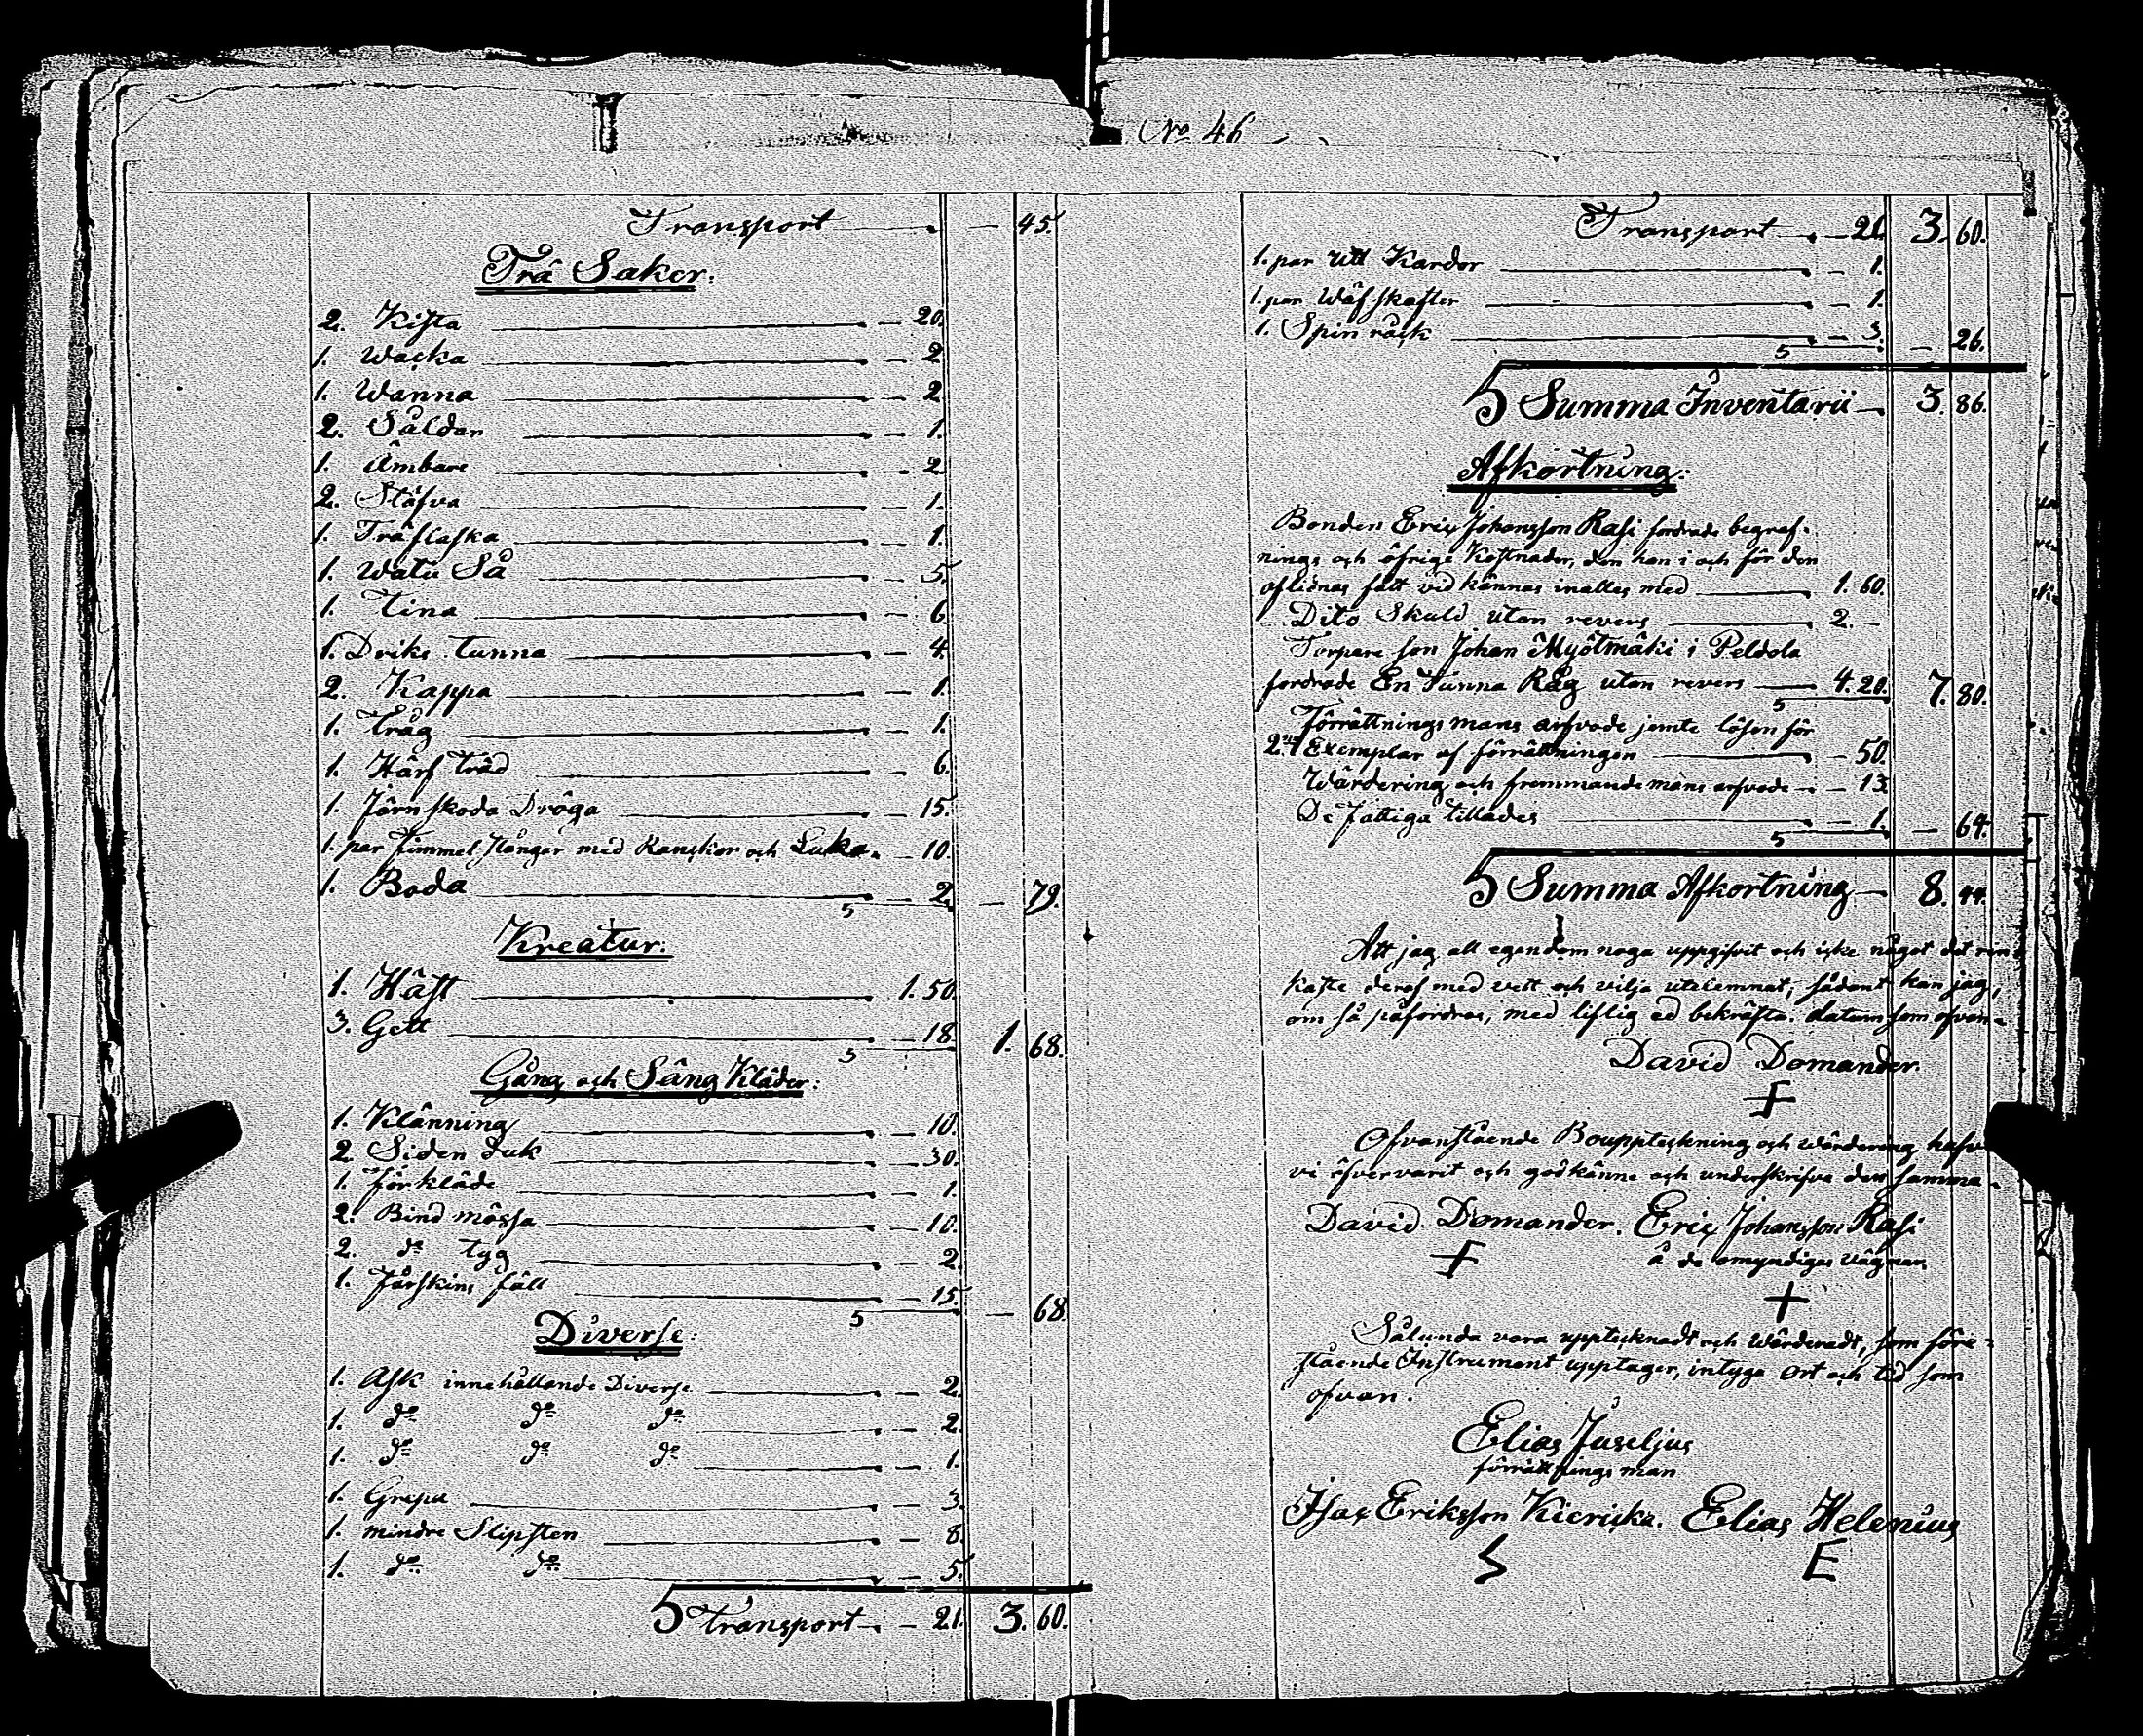 Transport — 45.
Trä Saker:
2. Kista — 20.
1. Wacka — 2.
1. Wanna — 2
2. Såldar — 1.
1. Ämbare — 2.
2. Stäfva — 1.
1. Träflaska — 1.
1. Watu Så — 5.
1. Tina — 6.
1. Driks tunna — 4.
2. Kappa — 1.
1. Tråg — 1.
1. Härf träd — 6.
1. Järn skoda Dröga — 15.
1. par Timmel stänger med Kanskor och Luka. — 10.
1. Boda — 2. 5 — 79.
Kreatur:
1. Häst — 1. 50.
3. Gett — 18. 5 1. 68.
Gång och Säng Kläder:
1. Klänning — 10.
2 Siden duk — 30.
1. förkläde — 1.
2. Bind mössa — 10.
2. do tyg — 2.
1. Fårskins fäll — 15. 5 — 68.
Diverse:
1. Ask innehållande Diverse — 2.
1. do do do — 2.
1. do do do — 1.
1. Grepu — 3.
1. mindre Slipsten — 8.
1. do do — 5.
5 Transport — 21. 3. 60.
No 46
Transport — 21. 3. 60.
1. par Ull Kardor — 1.
1. par Wäf skafter — 1.
1. Spin råck — 3. 5 — 26.
5 Summa Inventarii — 3. 86.
Afkortning:
Bonden Eric Johansson Rasi fordrade begraf-
nings och öfrige Kostnader, den han i och för den
aflidnas fått vid kännas inalles med — 1. 60.
Dito Skuld utan revers — 2. —
Torpare son Johan Myötmäki i Peldola
fordrade En Tunna Råg utan revers — 4. 20. 5 7. 80.
Förrättnings mans arfvode jemte lösen för
2ne Exemplar af förrättningen — 50.
Wärdering och fremmande mäns arfvode — 13.
De fattiga tillades — 1. 5 — 64.
5 Summa Afkortning — 8. 44.
Att jag all egendom noga uppgifvit och icke något det rin-
kaste deraf med vett och vilja utelemnat, sådant kan jag,
om så påfordras, med liflig ed bekräfta. datum som ofvan.
David Domander.
Ofvanstående Bouppteckning och Wärdering hafve
vi öfvervarit och godkänne och underskrifva den samma.
David Domander. Eric Johansson Rasi
å de omyndigas vägnar.
Sålunda vara upptecknadt och Wärderadt, som före-
stående Instrument upptager, intyga ort och tid som
ofvan.
Elias Juseljus
förrättnings man
Isac Eriksson Kiericka. Elias Helenius
S E